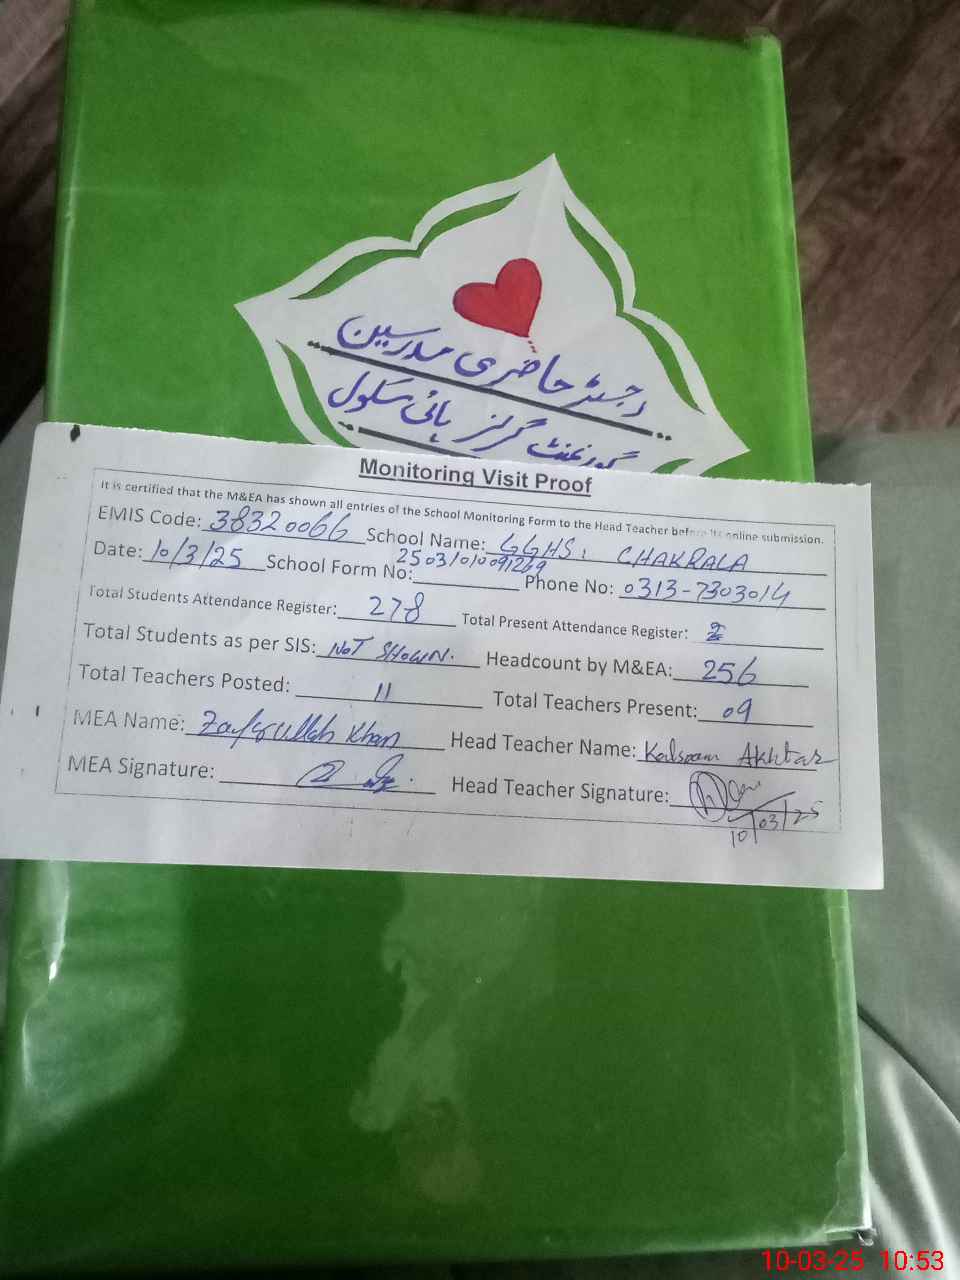 رجسٹر حاضری مدرسین
گورنمنٹ گرلز ہائی سکول
Monitoring Visit Proof
It is certified that the M&EA has shown all entries of the School Monitoring Form to the Head Teacher before its online submission.
EMIS Code: 38320066 School Name: GGHS, CHAKRALA
Date: 10/3/25 School Form No: Phone No: 0313-7303014
Total Students Attendance Register: 278 Total Present Attendance Register:
Total Students as per SIS: NOT SHOWN. Headcount by M&EA: 256
Total Teachers Posted: 11 Total Teachers Present: 09
MEA Name: Zafarullah Khan Head Teacher Name: Kalsoom Akhtar
MEA Signature: Head Teacher Signature:
10/03/25
10-03-25 10:53